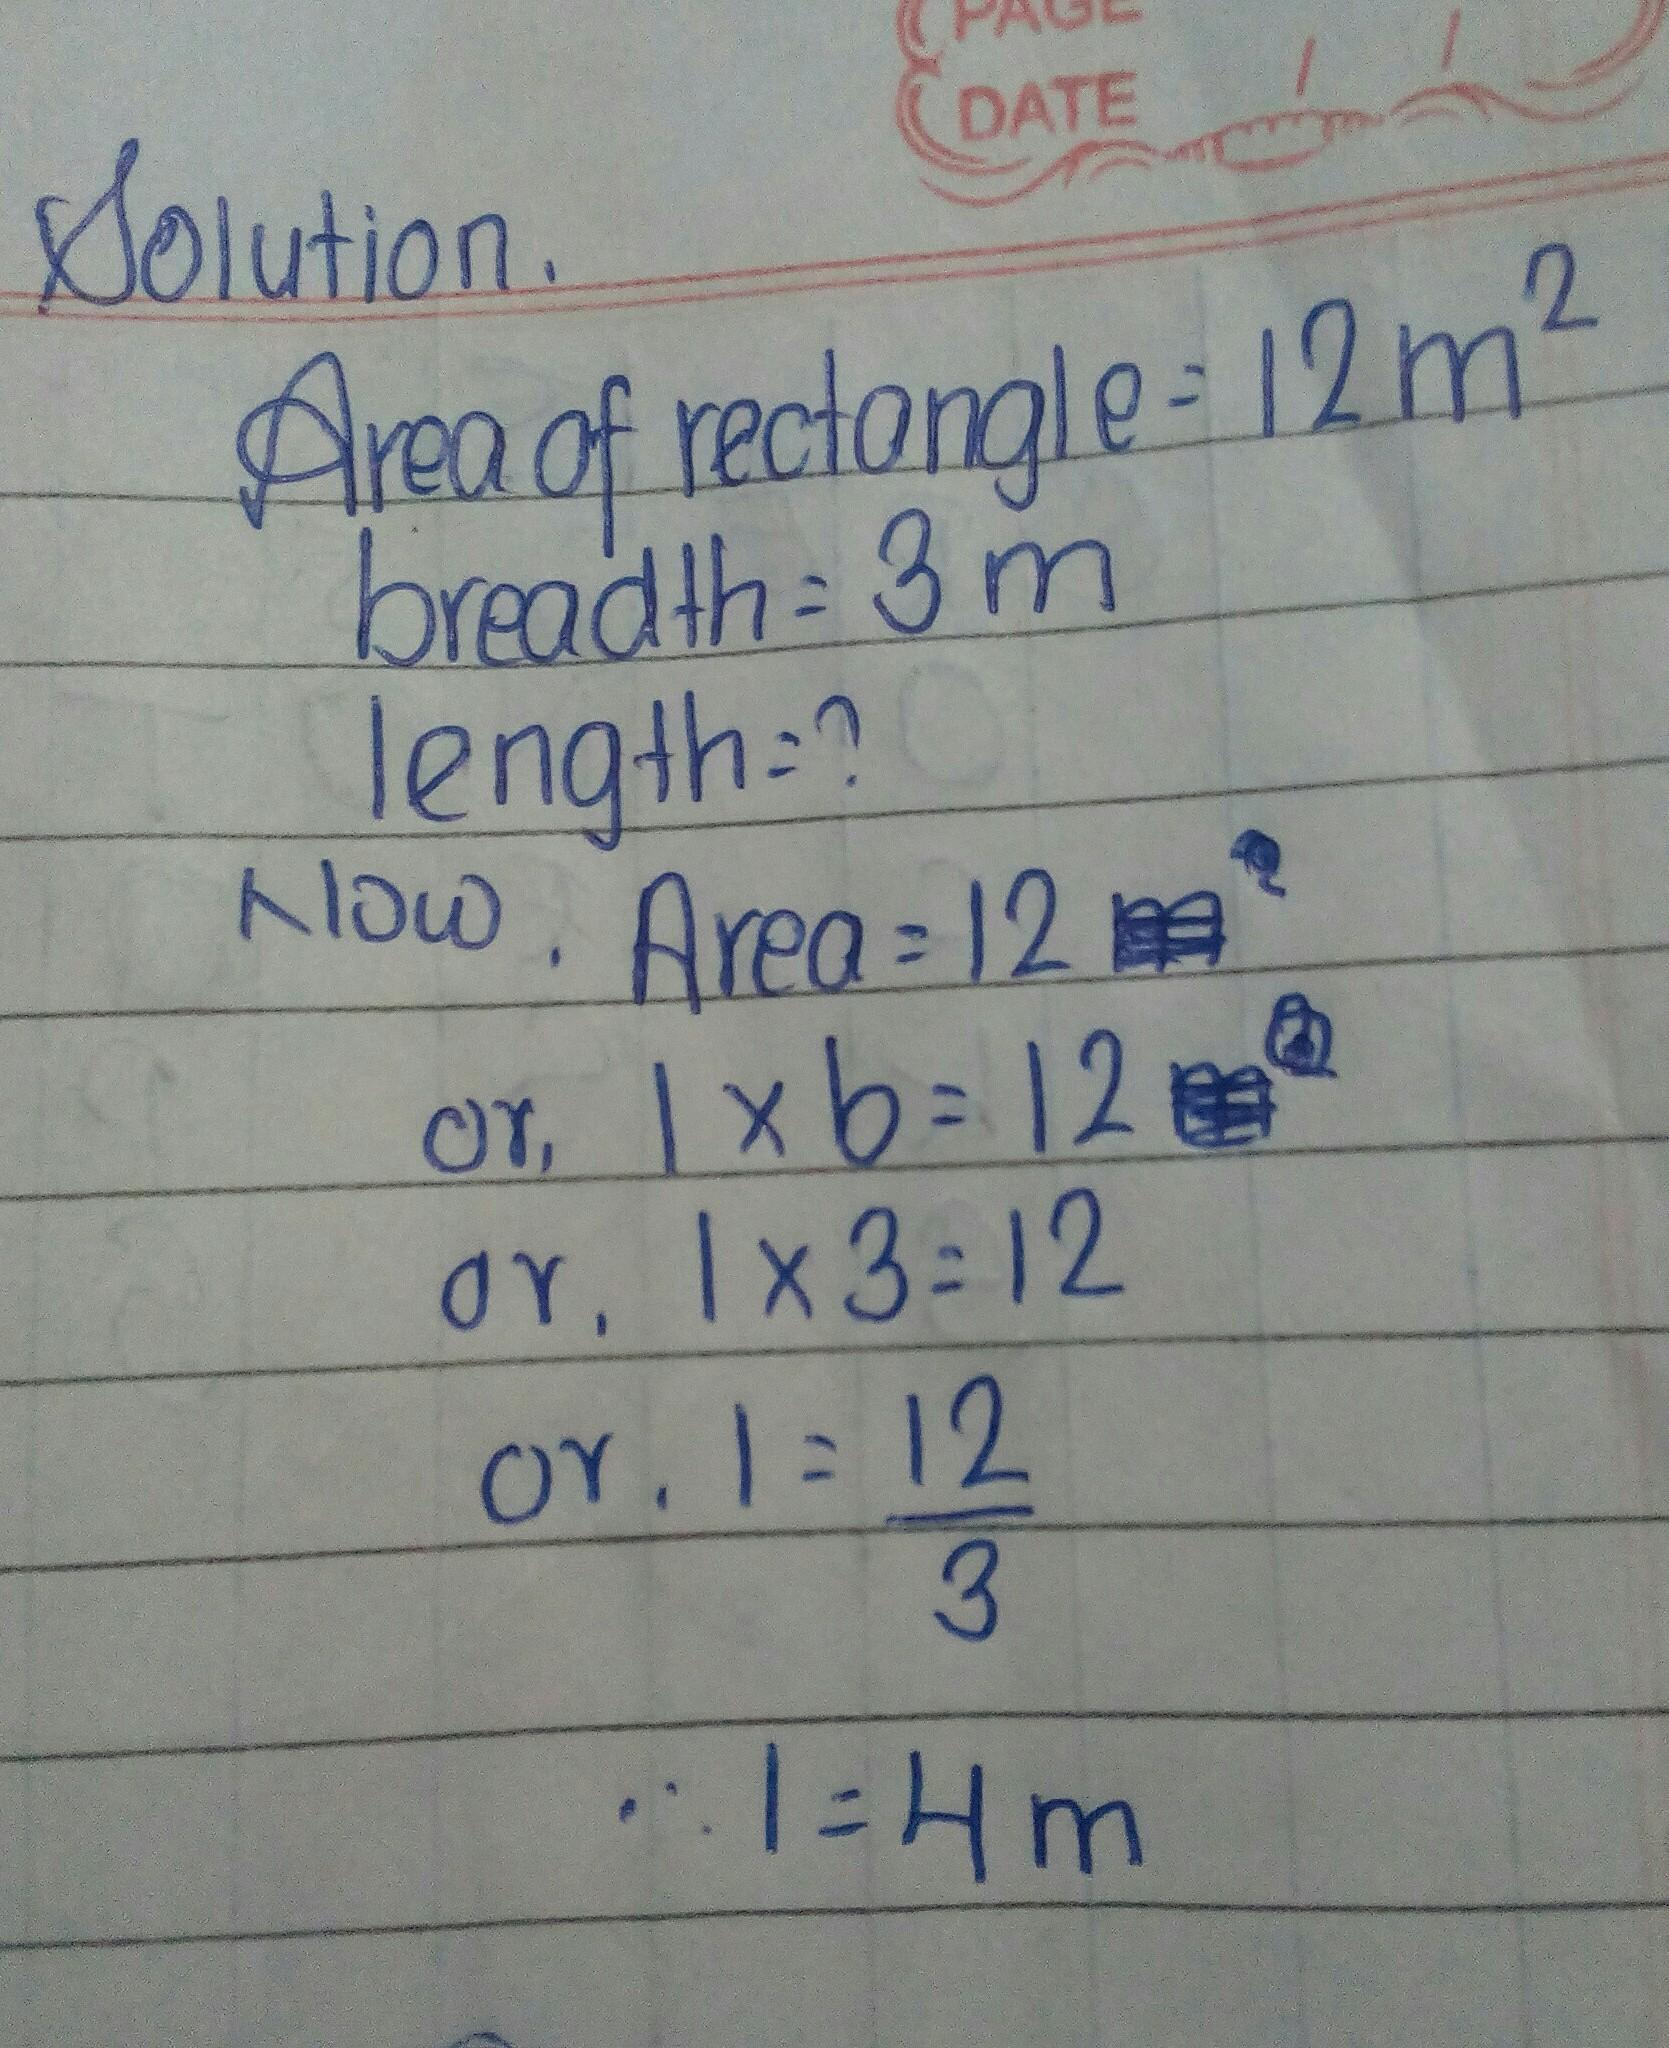 PAGE
DATE
Solution.
Area of rectangle = 12 m²
breadth = 3 m
length = ?
Now. Area = 12
or, l × b = 12
or, l × 3 = 12
or, l = 12
3
∴ l = 4 m